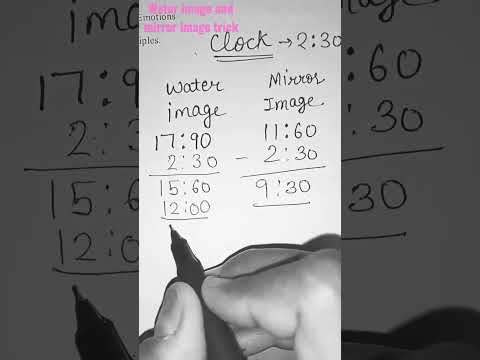 Water image and
mirror image trick
Emotions
iples.
Clock → 2:30
Water
image
17:90
2:30
15:60
12:00
Mirror
Image
11:60
- 2:30
9:30